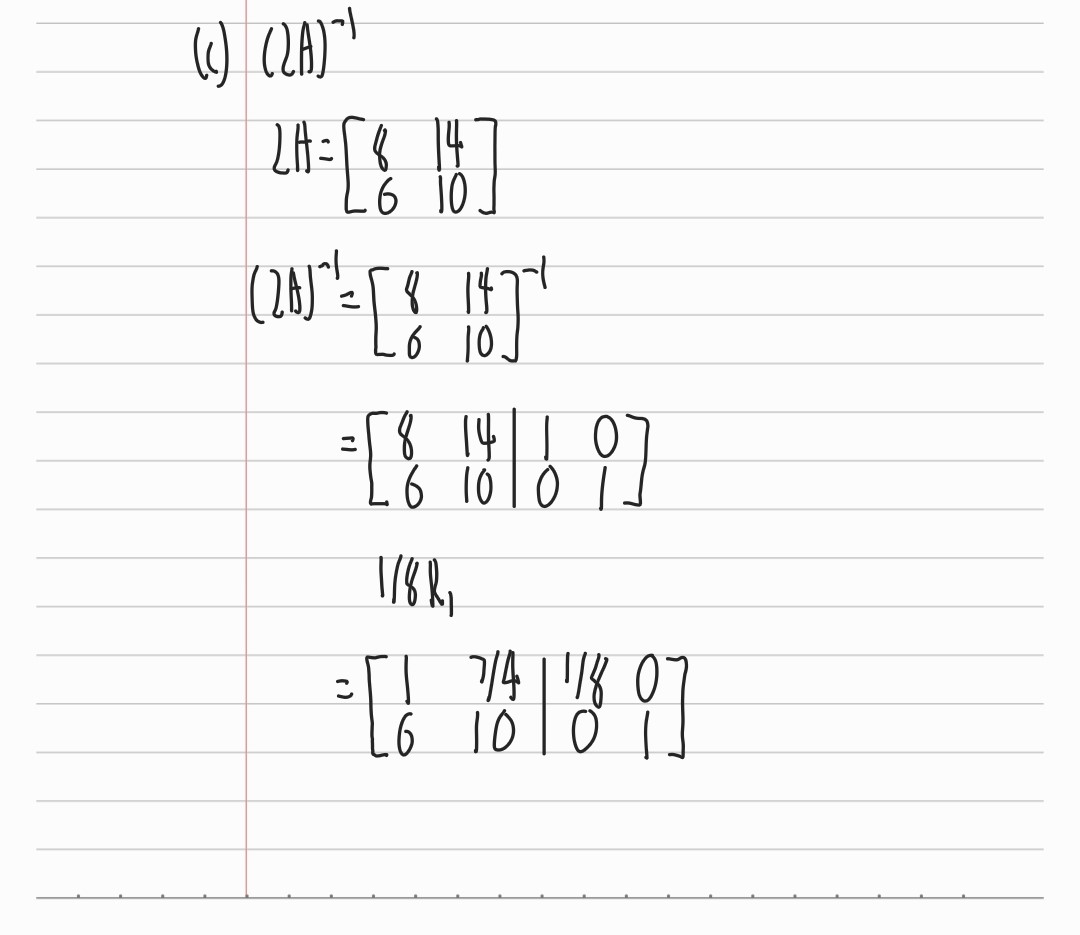 (c) (2A)⁻¹
2A = [8 14
6 10]
(2A)⁻¹ = [8 14
6 10]⁻¹
= [8 14 | 1 0
6 10 | 0 1]
1/8 R₁
= [1 7/4 | 1/8 0
6 10 | 0 1]